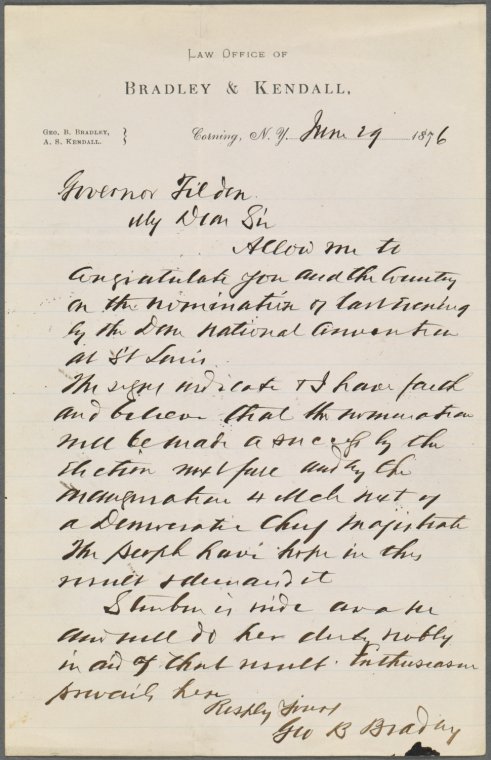 LAW OFFICE OF
BRADLEY & KENDALL,
GEO. B. BRADLEY,
A. S. KENDALL.
Corning, N. Y. June 29 1876
Governor Tilden
My Dear Sir
Allow me to
Congratulate you and the Country
on the nomination of last evening
by the Dem National Convention
at St Louis
The signs indicate & I have faith
and believe that the nomination
will be made a success by the
Election next fall and by the
inauguration 4 Mch next of
a Democratic Chief Magistrate
The people have hope in this
result & demand it
Steuben is wide awake
and will do her duty nobly
in aid of that result. Enthusiasm
prevails here
Respty Yours
Geo B Bradley